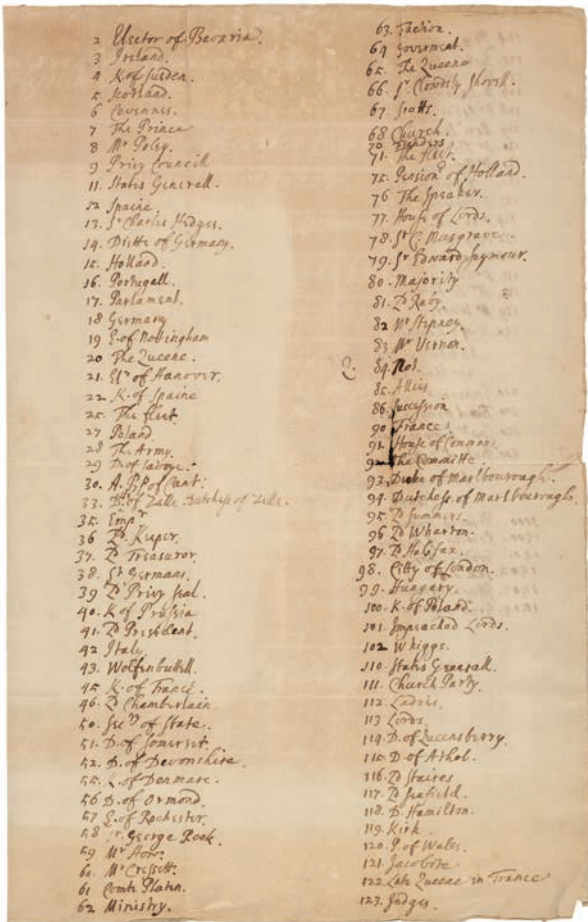 2 Elector of Bavaria.
3 Ireland.
4 K of Sueden.
5 Scotland.
6 Cevennes.
7 The Prince
8 Mr Poley.
9 Privy Councill
11. States Generall.
12 Spaine
13. Sr Charles Hedges.
14. Diette of Germany.
15. Holland.
16. Portugall.
17. Parlament.
18 Germany
19 E. of Nottingham
20 The Queene.
21. Elr of Hanover.
22. K. of Spaine
25. The fleet.
27 Poland
28 The Army.
29 D. of Savoye.
30. A. BP of Cant:
33. of Zelle. Dutchess of Zelle.
35. Empr
36 Ld Keeper.
37. Ld Treasuror.
38. St Germans.
39 Ld Privy seal.
40. K of Prussia
41. Ld President.
42 Italy
43. Wolfenbuttell.
45 K. of France.
46. Ld Chamberlain
50. Secry of State.
51. D. of Somerset.
52. D. of Devonshire.
55. K. of Denmarc.
56 D. of Ormond.
57 E. of Rochester.
58 Sr. George Rook.
59 Mr How.
60. Mr Cressett.
61 Comte Platen.
62. Ministry.
63. Faction.
64 Goverment.
65. The Queene
66. Sr Clowdsly Shovell.
67. Scotts.
68 Church.
70 Flanders
71. The fleet.
75. Pensiond of Holland.
76 The Speaker.
77. House of Lords.
78. Sr C. Musgrave.
79. Sr Edward Seymour.
80. Majority
81. Ld Raby.
82 Mr Stepney.
83 Mr Vernon.
84. Not.
85. Allies
86. Succession
90 France
91. House of Commons
92 The Committe
93. Duke of Marlbourough.
94. Dutchess of Marlbourough.
95. Ld Summers.
96 Ld Wharton.
97. Ld Halifax.
98. Citty of London.
99. Hungary.
100. K. of Poland.
101. Impeached Lords.
102 Whiggs.
110. States Generall.
111. Church Party.
112. Ladies.
113 Lords.
114. D. of Queensberry.
115 D. of Athol.
116. Ld Staires
117. Ld Seafield.
118. D. Hamilton.
119. Kirk.
120. P. of Wales.
121. Jacobite
122. Late Queene in France
123. Judges.